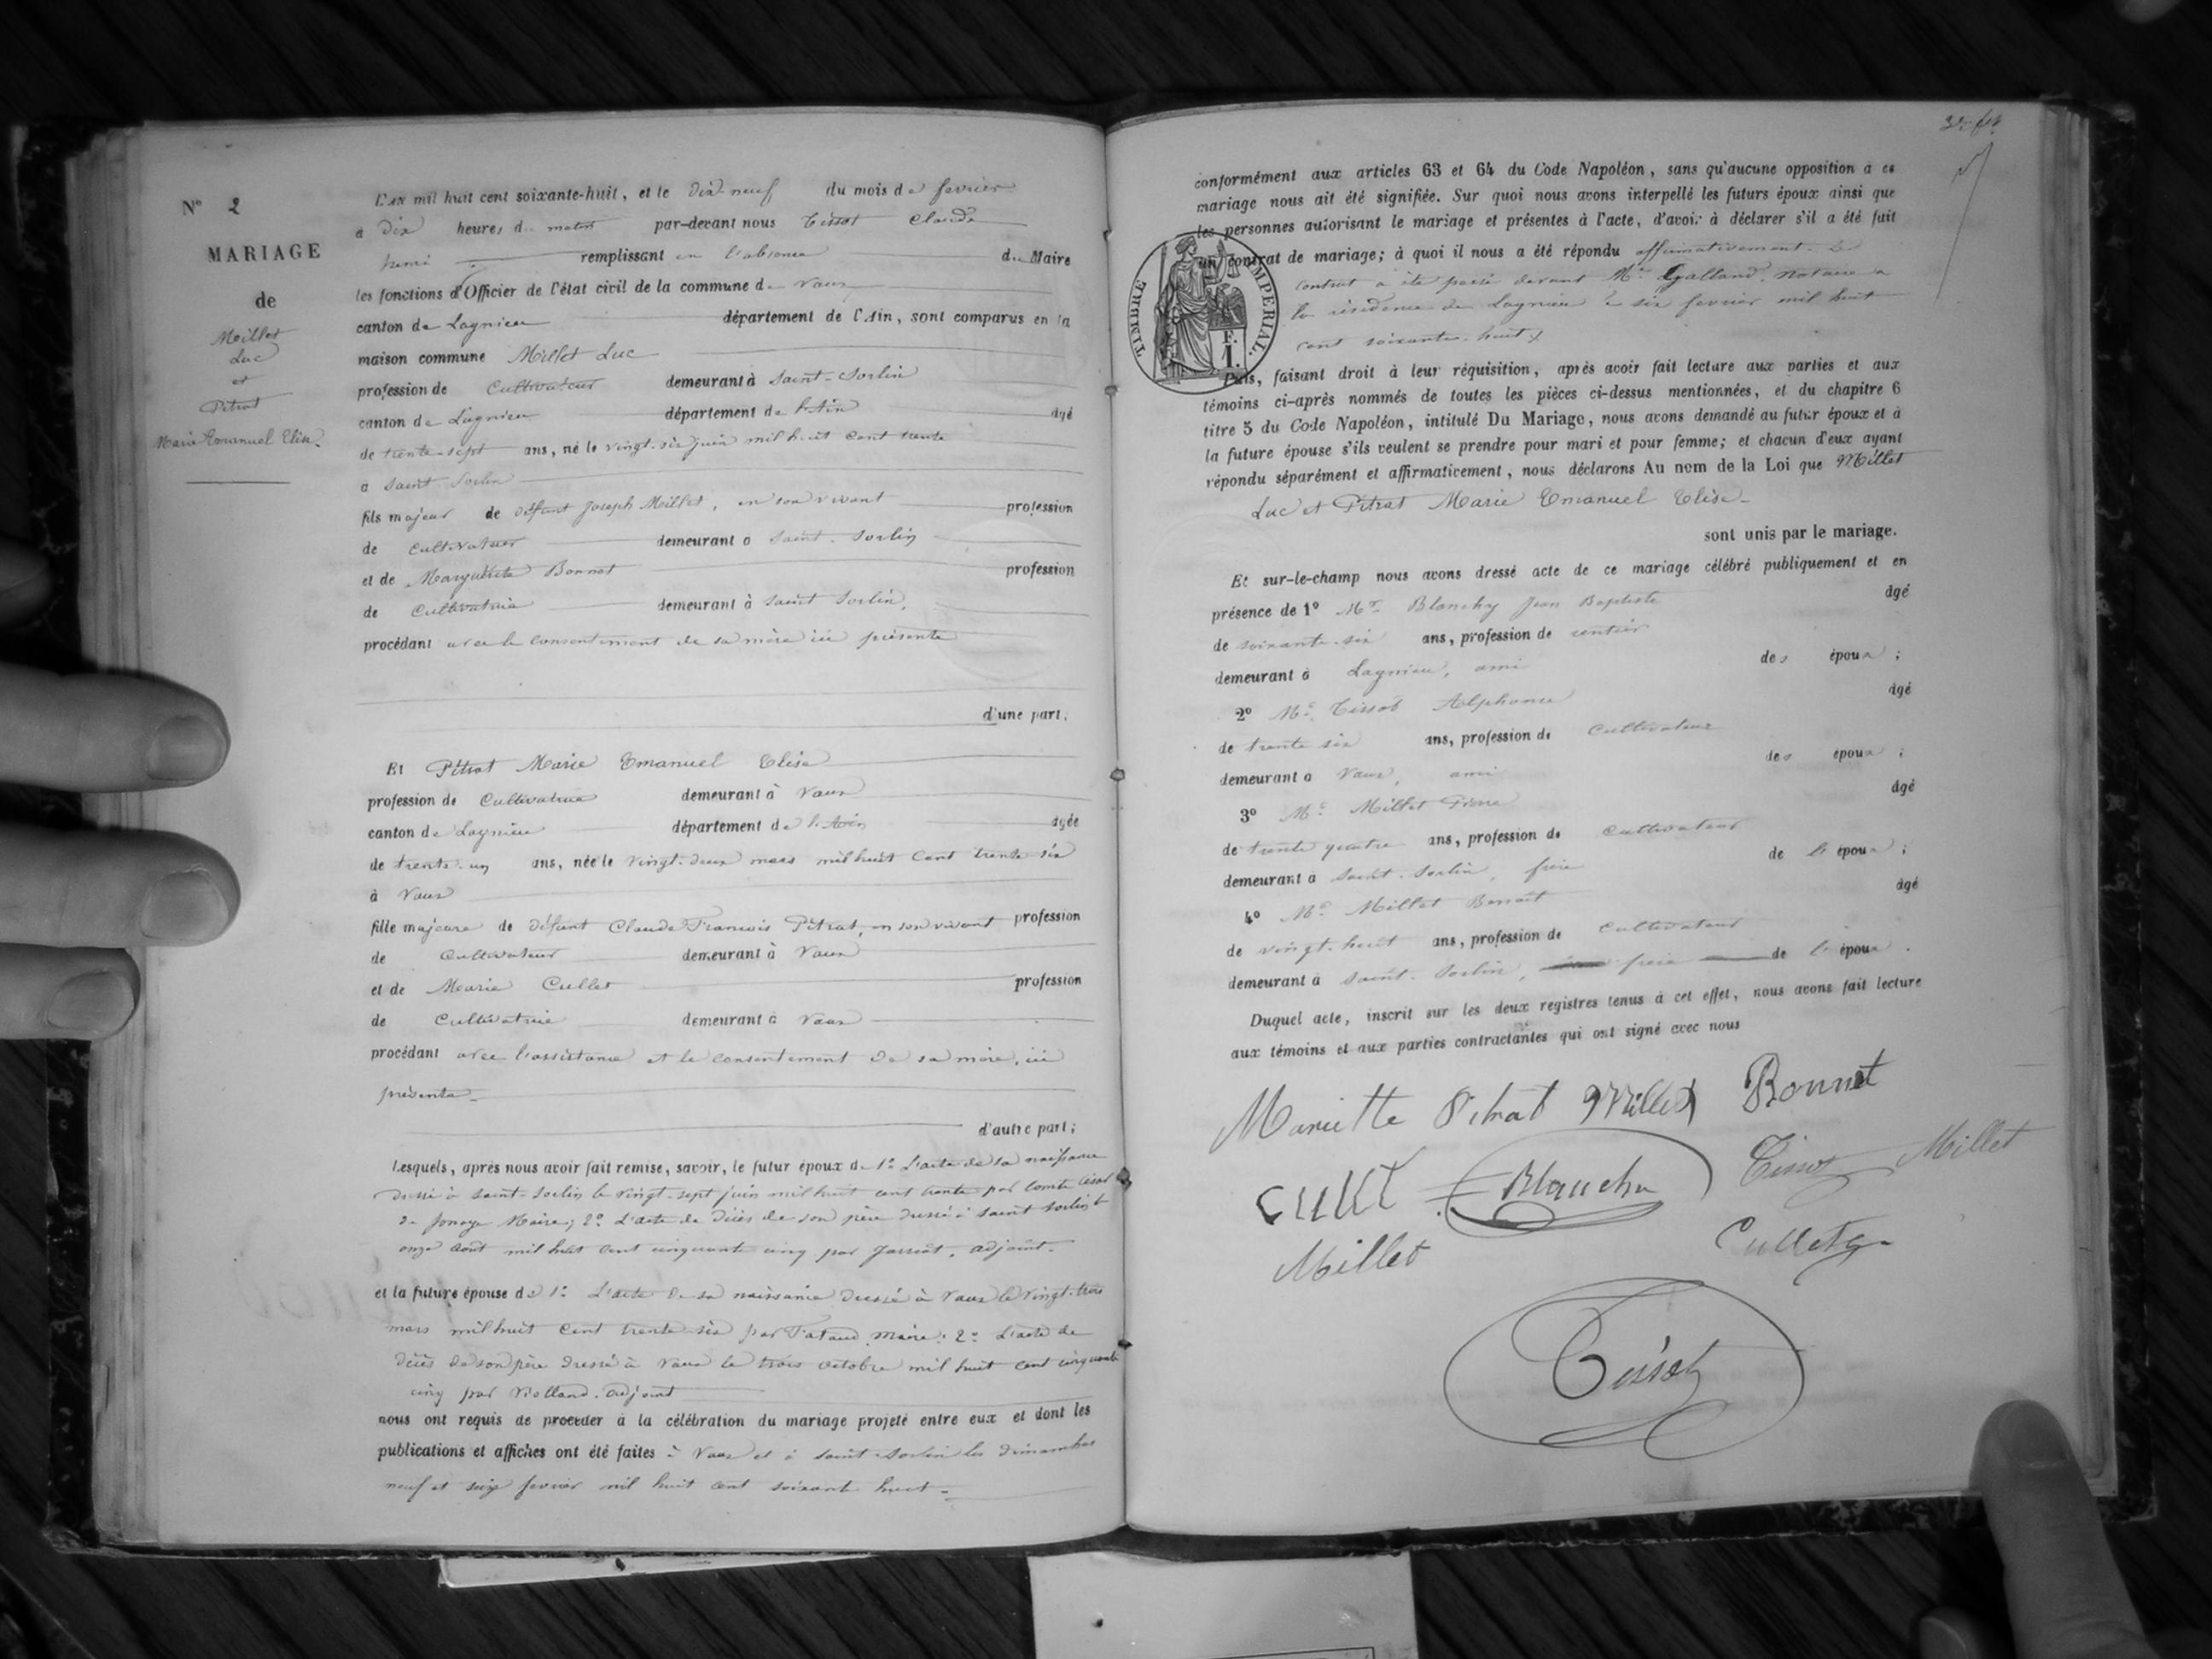 N° 2
MARIAGE
de
Millet
Luc
et
Pitrat
Marie Emanuel Elise
L'an mil huit cent soixante-huit, et le Dix-neuf du mois de fevrier
à Dix heures du matin par-devant nous Tissot Claude
henri remplissant en l'absence du Maire
les fonctions d'Officier de l'état civil de la commune de Vaux
canton de Lagnieu département de l'Ain, sont comparus en la
maison commune Millet Luc
profession de Cultivateur demeurant à Saint-Sorlin
canton de Lagnieu département de l'Ain âgé
de trente-sept ans, né le vingt-six juin mil huit cent trente
à Saint Sorlin
fils majeur de défunt Joseph Millet, en son vivant profession
de Cultivateur demeurant à Saint-Sorlin
et de Marguerite Bonnet profession
de Cultivatrice demeurant à Saint Sorlin,
procédant avec le consentement de sa mère ici présente
d'une part;
Et Pitrat Marie Emanuel Elise
profession de Cultivatrice demeurant à Vaux
canton de Lagnieu département de l'Ain âgée
de trente-un ans, née le vingt-deux mars mil huit cent trente six
à Vaux
fille majeure de défunt Claude François Pitrat, en son vivant profession
de Cultivateur demeurant à Vaux
et de Marie Cullet profession
de Cultivatrice demeurant à Vaux
procédant avec l'assistance et le consentement de sa mère, ici
présente
d'autre part;
Lesquels, après nous avoir fait remise, savoir, le futur époux de 1° L'acte de sa naissance
dressé à Saint-Sorlin le vingt-sept juin mil huit cent trente par Comte César
de Maire; 2° L'acte de décès de son père dressé à Saint Sorlin le
onze août mil huit cent cinquante cinq par adjoint.
et la future épouse de 1° L'acte de sa naissance dressé à Vaux le vingt-trois
mars mil huit cent trente six par Maire; 2° L'acte de
décès de son père dressé à Vaux le trois octobre mil huit cent cinquante
cinq par adjoint
nous ont requis de procéder à la célébration du mariage projeté entre eux et dont les
publications et affiches ont été faites à Vaux et à Saint-Sorlin les dimanches
neuf et seize fevrier mil huit cent soixante huit
conformément aux articles 63 et 64 du Code Napoléon, sans qu'aucune opposition à ce
mariage nous ait été signifiée. Sur quoi nous avons interpellé les futurs époux ainsi que
les personnes autorisant le mariage et présentes à l'acte, d'avoir à déclarer s'il a été fait
un contrat de mariage; à quoi il nous a été répondu affirmativement. Le
contrat a été passé devant Me Galland, notaire à
la résidence de Lagnieu le six fevrier mil huit
cent soixante-huit
TIMBRE IMPERIAL.
F.
1.
Puis, faisant droit à leur réquisition, après avoir fait lecture aux parties et aux
témoins ci-après nommés de toutes les pièces ci-dessus mentionnées, et du chapitre 6
titre 5 du Code Napoléon, intitulé Du Mariage, nous avons demandé au futur époux et à
la future épouse s'ils veulent se prendre pour mari et pour femme; et chacun d'eux ayant
répondu séparément et affirmativement, nous déclarons Au nom de la Loi que Millet
Luc et Pitrat Marie Emanuel Elise
sont unis par le mariage.
Et sur-le-champ nous avons dressé acte de ce mariage célébré publiquement et en
présence de 1° Mr Blanchy Jean Baptiste âgé
de soixante-six ans, profession de rentier
demeurant à Lagnieu, ami des époux;
2° Mr Tissot Alphonse âgé
de trente six ans, profession de Cultivateur
demeurant à Vaux, ami des époux;
3° Mr Millet Pierre âgé
de trente quatre ans, profession de Cultivateur
demeurant à Saint-Sorlin, frère de l'époux;
4° Mr Millet Benoit âgé
de vingt-huit ans, profession de Cultivateur
demeurant à Saint-Sorlin, frère de l'époux.
Duquel acte, inscrit sur les deux registres tenus à cet effet, nous avons fait lecture
aux témoins et aux parties contractantes qui ont signé avec nous
Mariette Pitrat Millet Bonnet
Blanchy Tissot Millet
Millet Cullet
Tissot